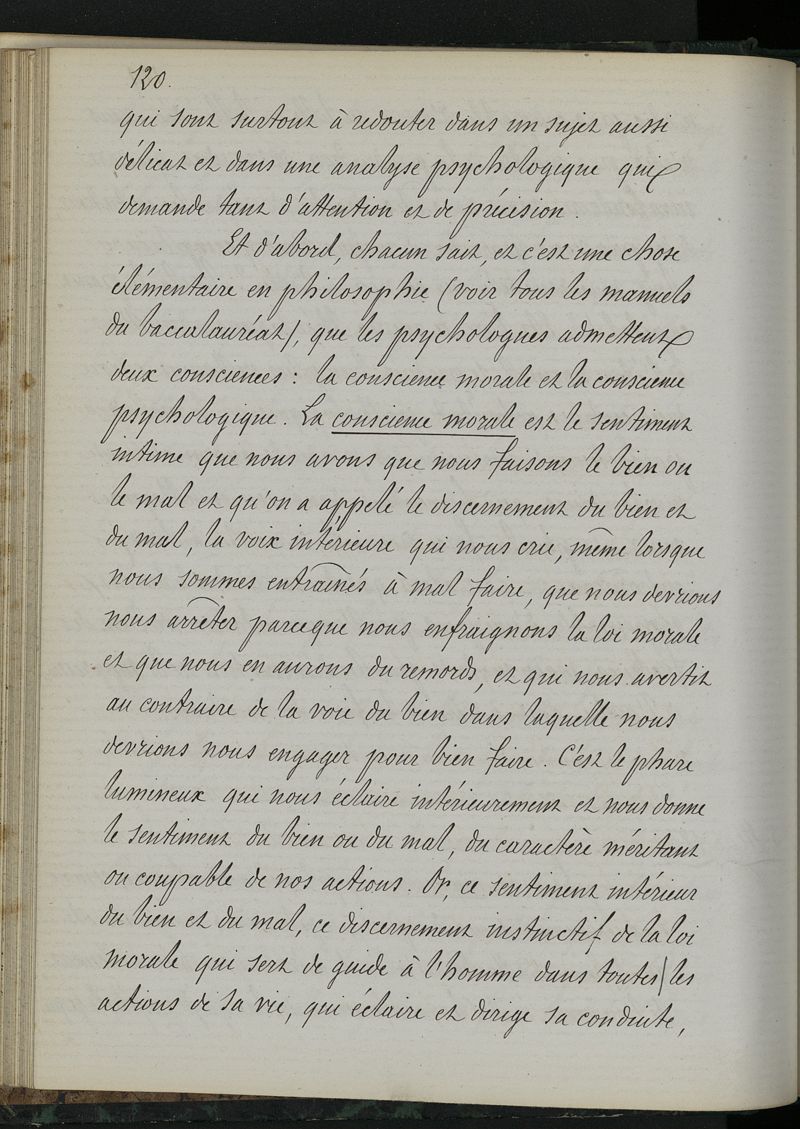 120.
qui sont surtout à redouter dans un sujet aussi
délicat et dans une analyse psychologique qui
demande tant d'attention et de précision.
Et d'abord, chacun sait, et c'est une chose
élémentaire en philosophie (voir tous les manuels
du baccalauréat), que les psychologues admettent
deux consciences : la conscience morale et la conscience
psychologique. La conscience morale est le sentiment
intime que nous avons que nous faisons le bien ou
le mal et qu'on a appelé le discernement du bien et
du mal, la voix intérieure qui nous crie, même lorsque
nous sommes entraînés à mal faire, que nous devrions
nous arrêter parceque nous enfraignons la loi morale
et que nous en aurons du remords, et qui nous avertit
au contraire de la voie du bien dans laquelle nous
devrions nous engager pour bien faire. C'est le phare
lumineux qui nous éclaire intérieurement et nous donne
le sentiment du bien ou du mal, du caractère méritant
ou coupable de nos actions. Or, ce sentiment intérieur
du bien et du mal, ce discernement instinctif de la loi
morale qui sert de guide à l'homme dans toutes les
actions de sa vie, qui éclaire et dirige sa conduite,